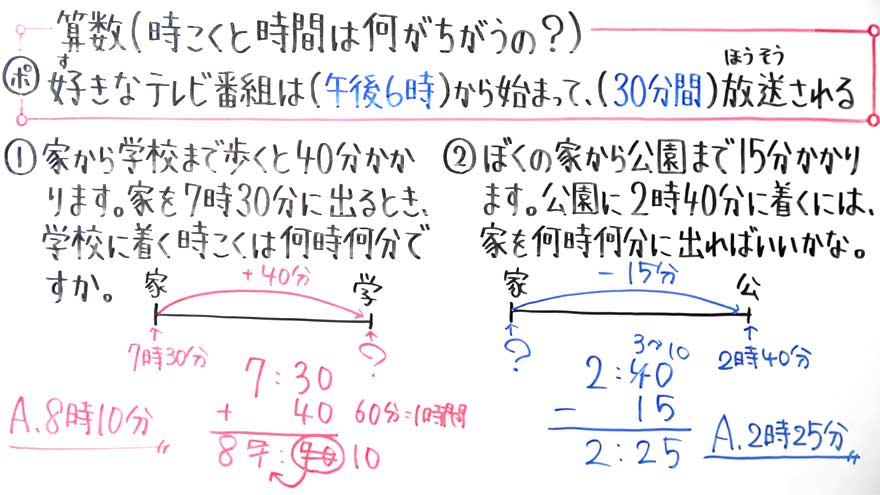 算数(時こくと時間は何がちがうの?)
す
ほうそう
ポ 好きなテレビ番組は(午後6時)から始まって、(30分間)放送される
① 家から学校まで歩くと40分かか
ります。家を7時30分に出るとき、
学校に着く時こくは何時何分で
すか。
家 +40分 学
7時30分 ?
7:30
+ 40 60分=1時間
8 7:70 10
A.8時10分
② ぼくの家から公園まで15分かかり
ます。公園に2時40分に着くには、
家を何時何分に出ればいいかな。
家 -15分 公
? 2時40分
3 10
2:40
- 15
2:25
A.2時25分